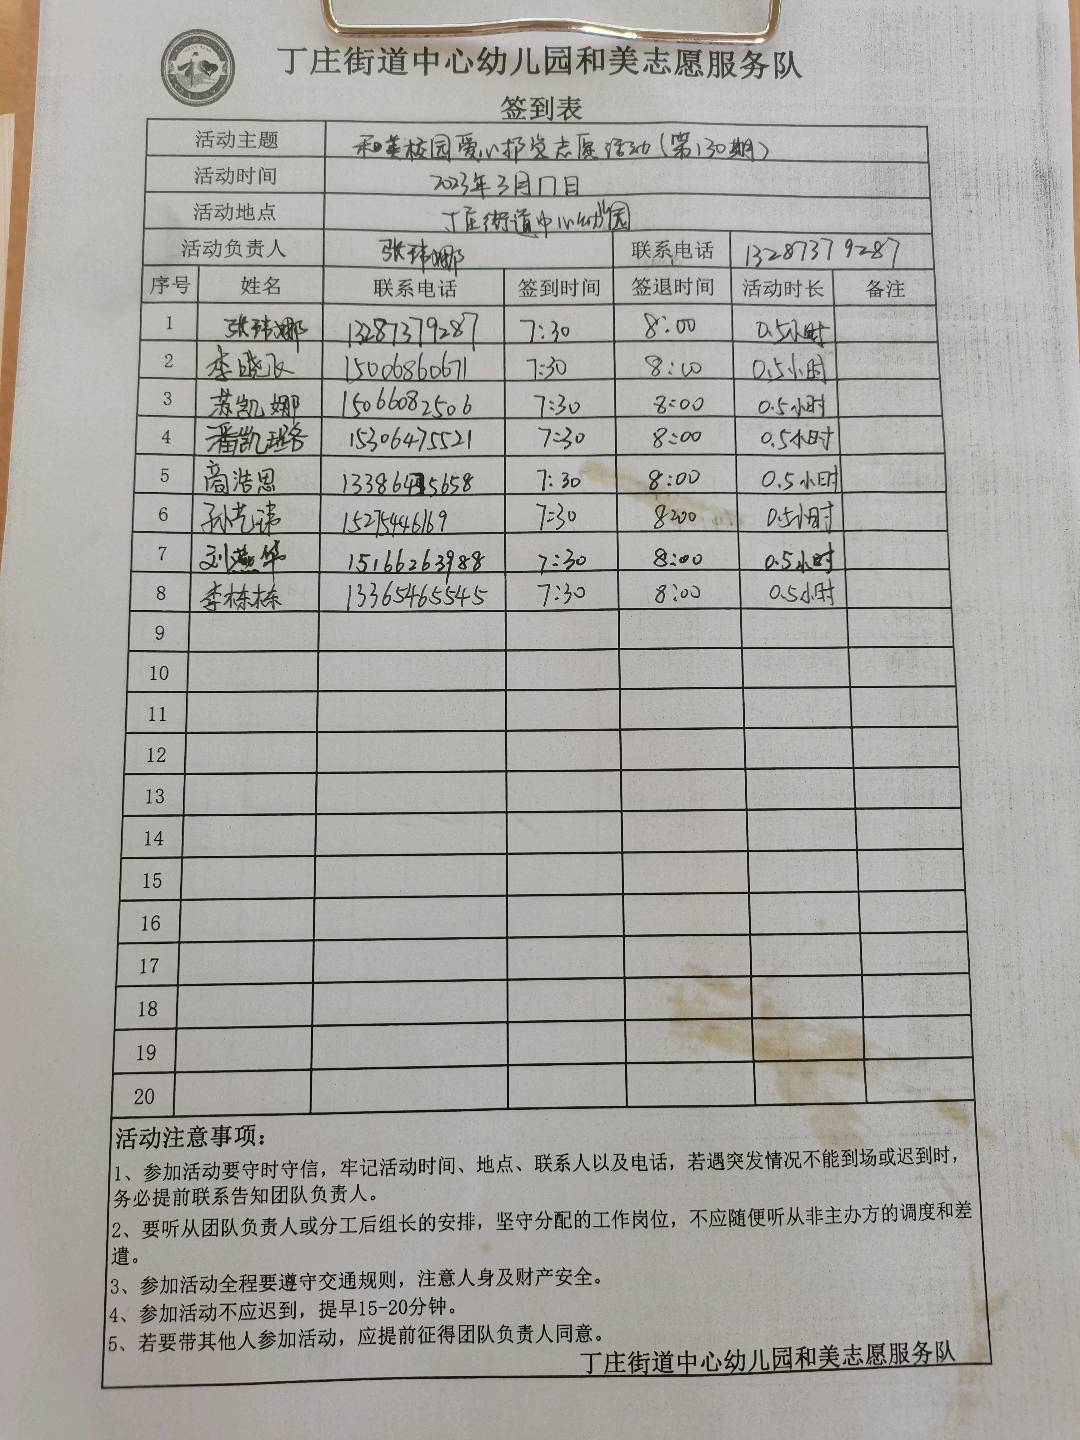 丁庄街道中心幼儿园和美志愿服务队
签到表
活动主题 和美校园爱心护学志愿活动(第130期)
活动时间 2023年3月17日
活动地点 丁庄街道中心幼儿园
活动负责人 张玮娜 联系电话 13287379287
序号 姓名 联系电话 签到时间 签退时间 活动时长 备注
1 张玮娜 13287379287 7:30 8:00 0.5小时
2 李晓 15006860671 7:30 8:00 0.5小时
3 苏凯娜 15066082506 7:30 8:00 0.5小时
4 潘凯璐 15306475521 7:30 8:00 0.5小时
5 高浩思 7:30 8:00 0.5小时
6 孙艺 15275446169 7:30 8:00 0.5小时
7 刘燕华 15166263988 7:30 8:00 0.5小时
8 李栋栋 13365465545 7:30 8:00 0.5小时
9
10
11
12
13
14
15
16
17
18
19
20
活动注意事项:
1、参加活动要守时守信，牢记活动时间、地点、联系人以及电话，若遇突发情况不能到场或迟到时，
务必提前联系告知团队负责人。
2、要听从团队负责人或分工后组长的安排，坚守分配的工作岗位，不应随便听从非主办方的调度和差
遣。
3、参加活动全程要遵守交通规则，注意人身及财产安全。
4、参加活动不应迟到，提早15-20分钟。
5、若要带其他人参加活动，应提前征得团队负责人同意。
丁庄街道中心幼儿园和美志愿服务队